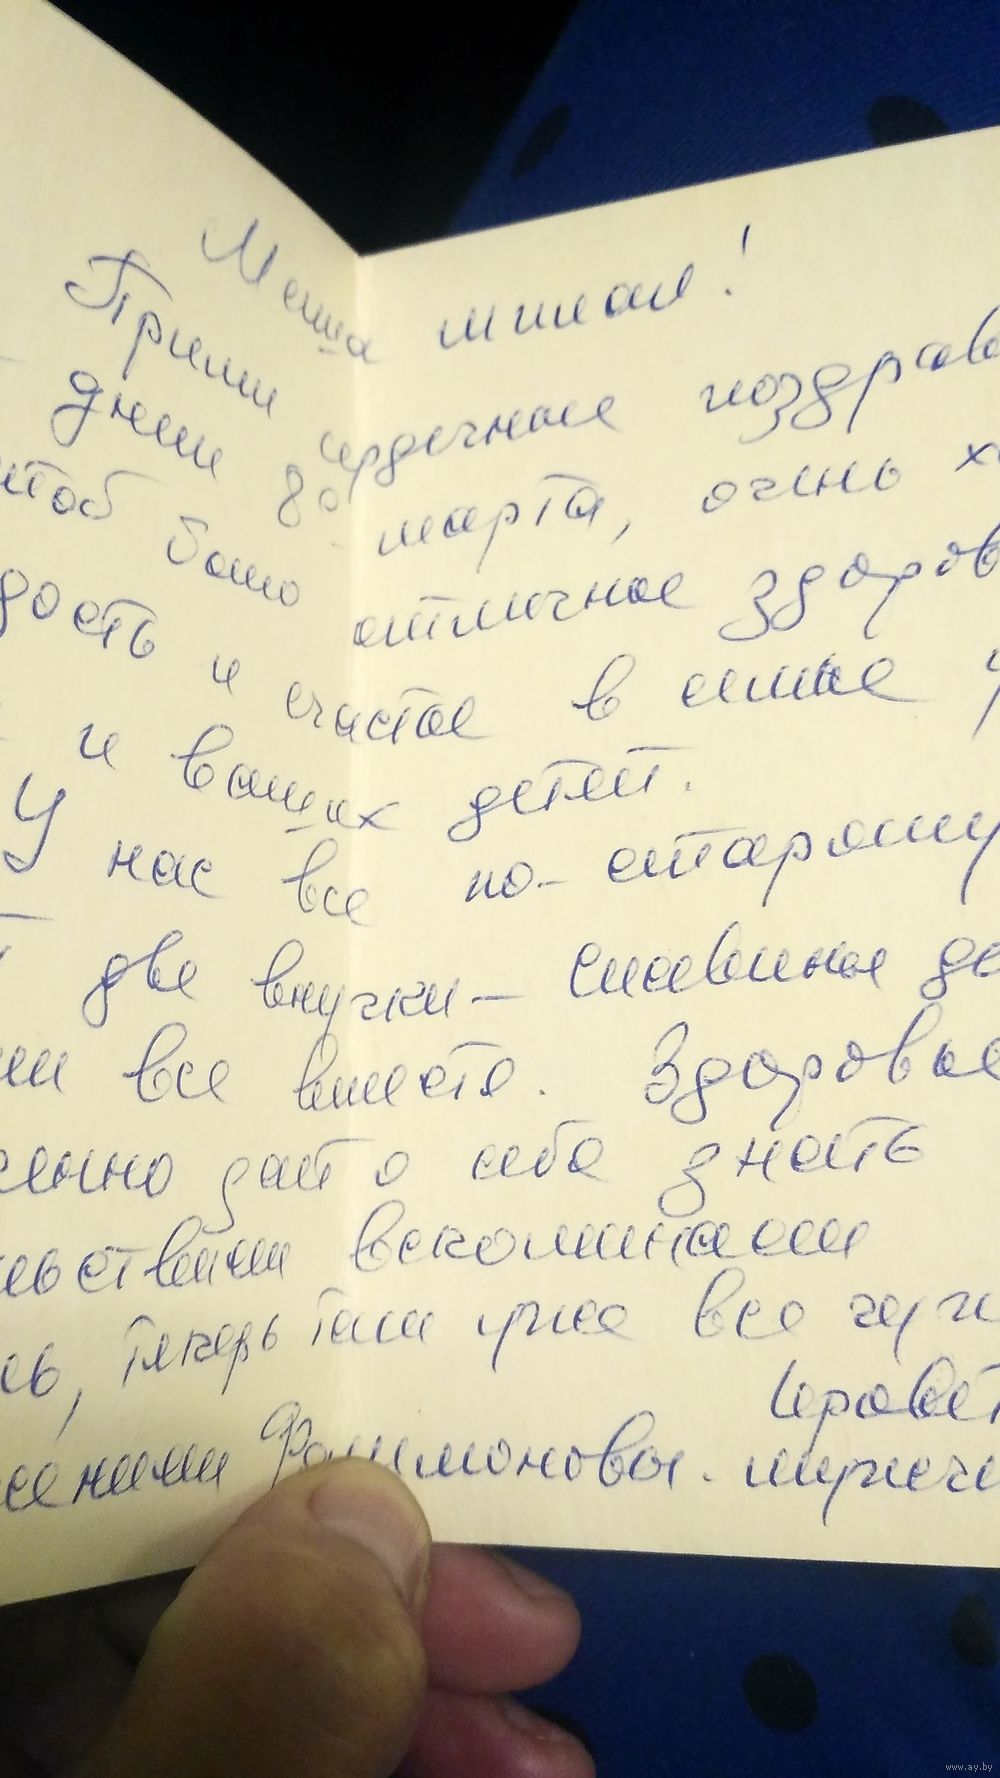 милая!
Прими сердечные поздрав
днем 8о марта, очень х
чтоб было отличное здоров
дость и счастье в семье у
и ваших детей.
У нас все по-старому
две внучки - славные де
все вместе. Здоровье
дает о себе знать
вспоминаем
теперь там уже все чуж
Привет
Филимоновы. мужечк
www.ay.by